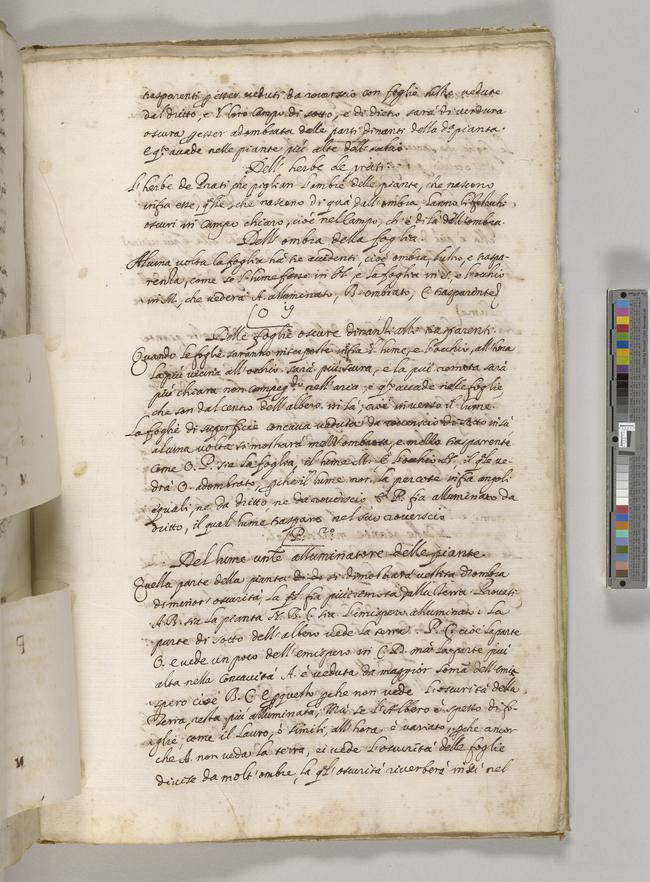 trasparenti p esser veduti da roverscio con foglie miste vedute
dal dritto, e 'l loro campo di sotto, e di dietro sarà di verdura
oscura p esser adombrata dalle parti dinanti della dª pianta.
E qº accade nelle piante più alte dell'
Dell' herbe de prati.
L'herbe de Prati, che piglian l'ombre delle piante, che nascono
infra esse, qlle, che nascono di quà dall'ombra hanno li
oscuri in campo chiaro, cioè nel campo, ch'è di là dall'ombra.
Dell'ombra della foglia.
Alcuna volta la foglia ha tre accidenti, cioè ombra, lustro, e traspa-
renza, come se 'l lume fosse in N. e la foglia in S. e l'occhio
in M., che vederà A. alluminato, B. ombrato, C. trasparente
Delle foglie oscure dinanti alle trasparenti.
Quando le foglie saranno interposte infra 'l lume, e l'occhio, all'hora
la più vicina all'occhio sarà più scura, e la più remota sarà
più chiara non campegdo nell'aria, e qº accade nelle foglie,
che son dal centro dell'albero in là, cioè inverso il lume.
Le foglie di superficie concava veduta da roverscio di sotto in sù
alcuna volta si mostrarà mezz'ombrata, e mezzo trasparente
come O. P. sia la foglia, il lume M. è l'occhio N. il qle ve-
drà O. adombrato, pche il lume non la percote infra angoli
equali, ne da dritto, ne da roverscio, et P. fia alluminato da
dritto, il qual lume traspare nel suo roverscio
Del lume unle alluminatore delle piante
Quella parte della pianta si dimostrarà vestita d'ombra
di minor' oscurità, la ql fia più remota dalla terra. Provasi
A. B. sia la pianta N. B. C. sia l'emispero alluminato. La
parte di sotto dell'albero vede la terra P. C. cioè la parte
O. e vede un poco dell'emispero in C. D. ma la parte più
alta nella concavità A. è veduta da maggior somª dell'emi-
spero cioè B. C. e p questo, pche non vede l'oscurità della
terra, resta più alluminata; Ma se l'Albero è spesso di fo-
glie, come il Lauro, ò simili, all'hora è variato, pche ancor
che A. non veda la terra, ei vede l'oscurità delle foglie
divise da molt'ombre, la ql' oscurità riverberà in sù nel